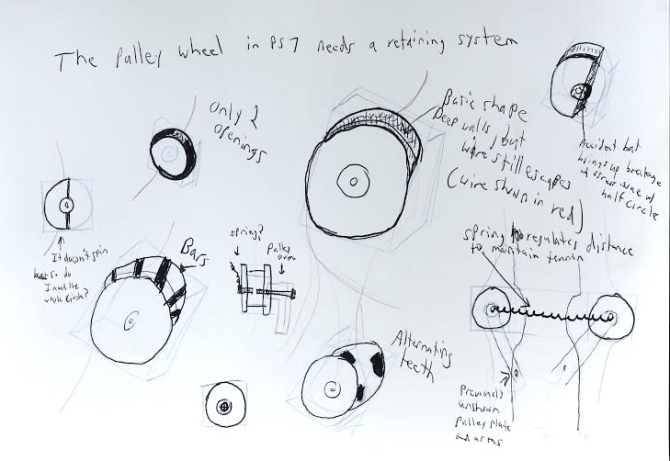 The Palley wheel in PS7 needs a retaining system
Only 2
openings
Basic shape
Deep walls, but
wire still escapes
(wire shown in
red)
Accident but
brings up breakage
half circle
It doesn't spin
so do
I need the
whole circle?
Bars
springs?
Palley
arm
spring regulates distance
to maintain tension
Alternating
teeth
Previously
unshown
Palley plate
arms